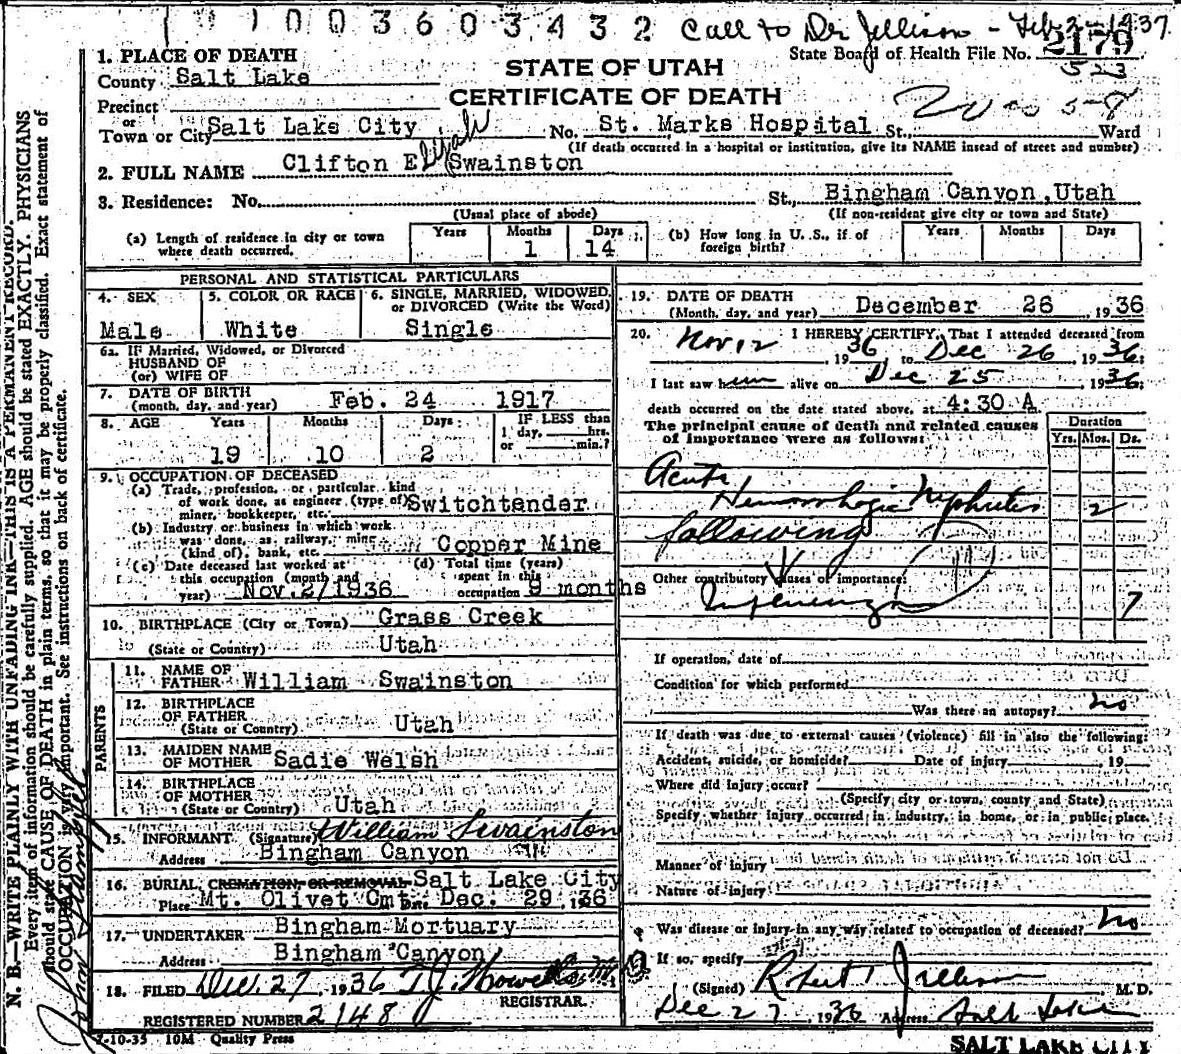 1003603432 Call to Dr Jellison - Feb 2-1937
State Board of Health File No. 2179
523
1. PLACE OF DEATH
STATE OF UTAH
CERTIFICATE OF DEATH
County Salt Lake
Precinct
or
Town or City Salt Lake City No. St. Marks Hospital St., Ward
(If death occurred in a hospital or institution, give its NAME insead of street and number)
2. FULL NAME Clifton Elijah Swainston
3. Residence: No. St., Bingham Canyon, Utah
(Usual place of abode) (If non-resident give city or town and State)
(a) Length of residence in city or town where death occurred. Years Months 1 Days 14
(b) How long in U. S., if of foreign birth? Years Months Days
PERSONAL AND STATISTICAL PARTICULARS
4. SEX Male
5. COLOR OR RACE White
6. SINGLE, MARRIED, WIDOWED, or DIVORCED (Write the Word) Single
6a. If Married, Widowed, or Divorced
HUSBAND OF
(or) WIFE OF
7. DATE OF BIRTH
(month, day, and year) Feb. 24 1917
8. AGE Years 19 Months 10 Days 2 IF LESS than 1 day, hrs. or min.?
9. OCCUPATION OF DECEASED
(a) Trade, profession, or particular kind
of work done, as engineer, (type of)
miner, bookkeeper, etc. Switchtender
(b) Industry or business in which work
was done, as railway, mine
(kind of), bank, etc. Copper Mine
(c) Date deceased last worked at
this occupation (month and
year) Nov. 2/1936
(d) Total time (years)
spent in this
occupation 9 months
10. BIRTHPLACE (City or Town) Grass Creek
(State or Country) Utah
PARENTS
11. NAME OF
FATHER William Swainston
12. BIRTHPLACE
OF FATHER
(State or Country) Utah
13. MAIDEN NAME
OF MOTHER Sadie Welsh
14. BIRTHPLACE
OF MOTHER
(State or Country) Utah
15. INFORMANT (Signature) William Swainston
Address Bingham Canyon
16. BURIAL, CREMATION, OR REMOVAL Salt Lake City
Place Mt. Olivet Cmt. Date Dec. 29, 1936
17. UNDERTAKER Bingham Mortuary
Address Bingham Canyon
18. FILED Dec. 27, 1936 T J. Howells M.D.
REGISTRAR.
REGISTERED NUMBER 2148
7-10-35 10M Quality Press
19. DATE OF DEATH
(Month, day, and year) December 26 1936
20. I HEREBY CERTIFY, That I attended deceased from
Nov 12, 1936, to Dec 26, 1936;
I last saw him alive on Dec 25, 1936;
death occurred on the date stated above, at 4:30 A
The principal cause of death and related causes
of importance were as follows:
Duration
Yrs. Mos. Ds.
Acute
Hemorrhagic Nephritis 2
following
Other contributory causes of importance:
Influenza 7
If operation, date of
Condition for which performed
Was there an autopsy? no
If death was due to external causes (violence) fill in also the following:
Accident, suicide, or homicide? Date of injury 19
Where did injury occur?
(Specify city or town, county and State)
Specify whether injury occurred in industry, in home, or in public place.
Manner of injury
Nature of injury
Was disease or injury in any way related to occupation of deceased? No
If so, specify
(Signed) Robert Jellison, M. D.
Dec 27, 1936 Address Salt Lake
SALT LAKE CITY
N. B.—WRITE PLAINLY WITH UNFADING INK—THIS IS A PERMANENT RECORD.
Every item of information should be carefully supplied. AGE should be stated EXACTLY. PHYSICIANS
should state CAUSE OF DEATH in plain terms, so that it may be properly classified. Exact statement of
OCCUPATION is very important. See instructions on back of certificate.